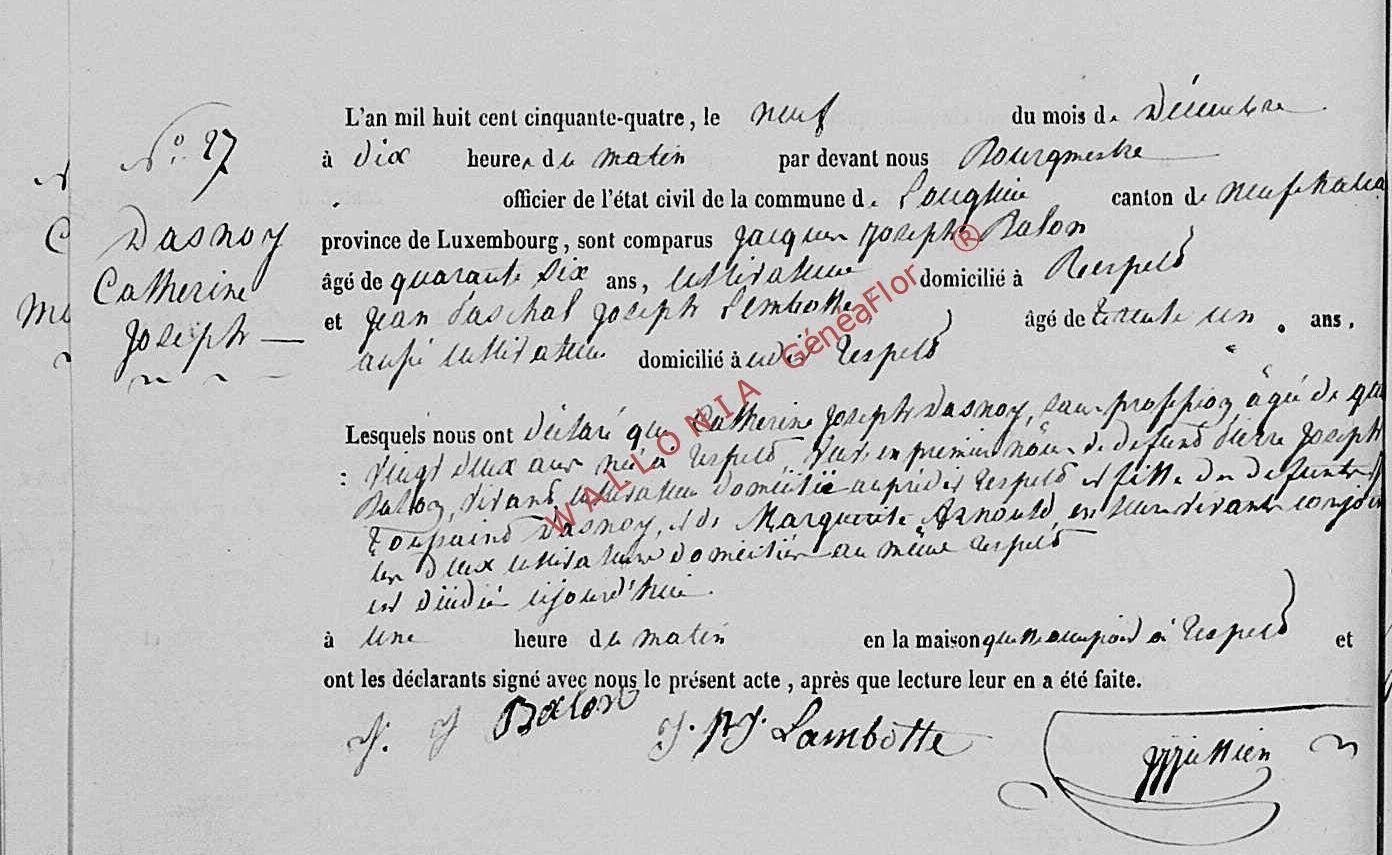 N.° 27
Dasnoy
Catherine
Joseph —
L'an mil huit cent cinquante-quatre, le neuf du mois de Décembre
à dix heures du matin par devant nous Bourgmestre
officier de l'état civil de la commune de Longlier canton de Neufchatea
province de Luxembourg, sont comparus Jacques Joseph Balon
âgé de quarante six ans, cultivateur domicilié à Respelt
et Jean Paschal Joseph Lembotte, âgé de trente un ans,
aussi cultivateur domicilié à udit Respelt
Lesquels nous ont déclaré que Catherine Joseph Dasnoy, sans profession, âgée de qua
vingt deux ans née à Respelt, en premier nôces de defunt Pierre Joseph
Balon, vivant cultivateur domicilié au prédit Respelt et fille des defunts
Toussaint Dasnoy, et de Marguerite Arnould, en leur vivant conjoi
les deux cultivateurs domiciliés au même Respelt
est décédée cejourd'huie.
à une heure du matin en la maison qu'elle occupoit à Respelt et
ont les déclarants signé avec nous le présent acte, après que lecture leur en a été faite.
J. J Balon J. PJ. Lambotte
WALLONIA GénéaFlor ®